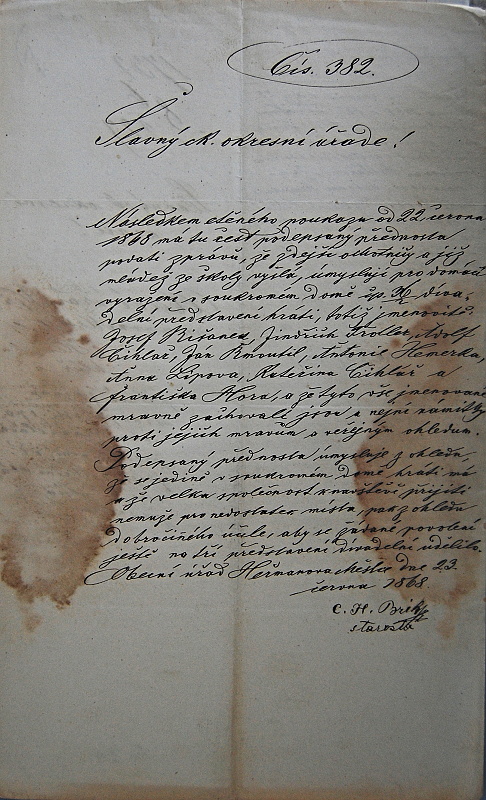 Čís. 382.
Slavný ck. okresní úřade!
Následkem ctěného poukazu od 22 června
1868 má tu čest podepsaný přednosta
podati zprávu, že zdejší ochotníci a již
mládež ze školy vyšlá, umysluje pro domácí
vyražení v soukromém domě čp. diva-
delní představení hrati, totiž jmenovitě:
Josef Řišanek, Jindřich Troller, Adolf
Cihlář, Jan Kmoutil, Antonie Hemerka,
Anna Lipova, Kateřina Cihlář a
Františka Hora, a že tyto vše jmenované
mravně zachovalí jsou a nejni námitky
proti jejich mravům a veřejným ohledům.
Podepsaný přednosta umysluje z ohledu,
že se jedině v soukromém domě hrati má
a že velka společnost k navštěvě přijíti
nemuže pro nedostatek místa, pak z ohledu
dobročiného účele, aby se žádané povolení
ještě na tři představení divadelní udělilo.
Obecní úřad Heřmanova Městce dne 23.
června 1868.
C. H.
starosta